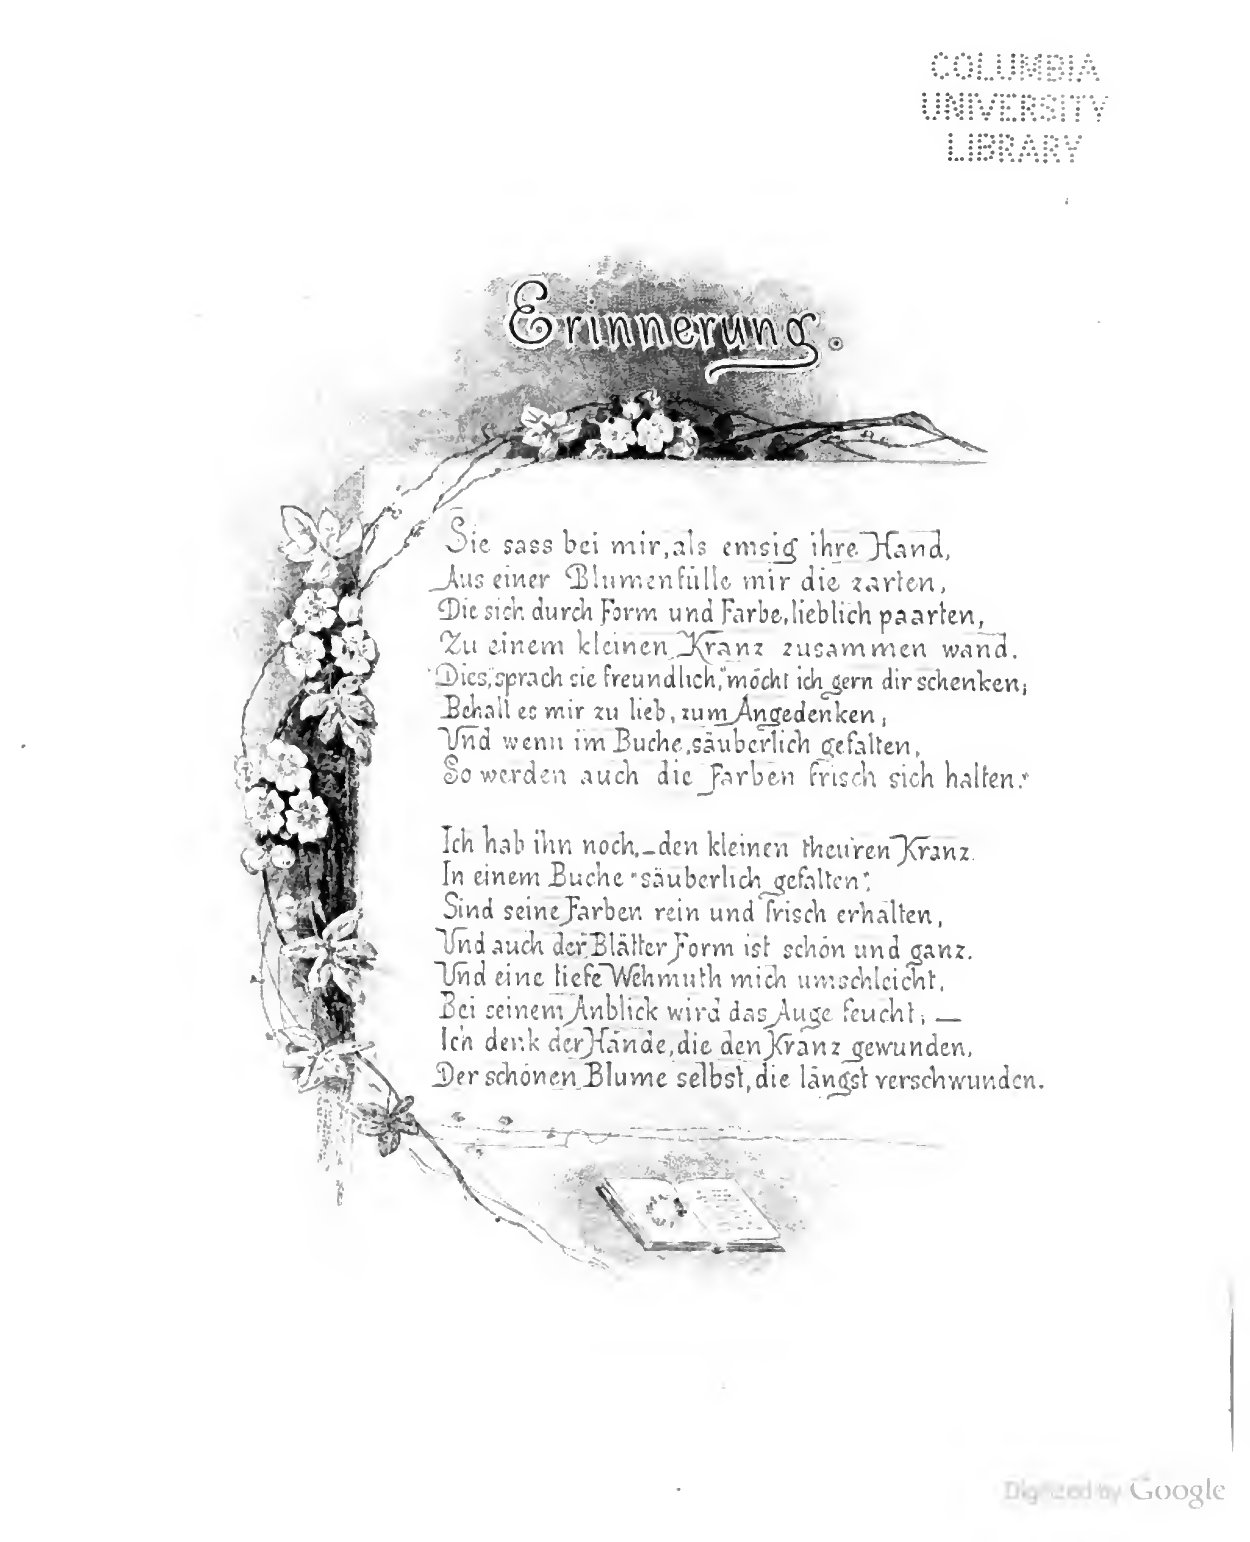 COLUMBIA
UNIVERSITY
LIBRARY
Erinnerung.
Sie sass bei mir, als emsig ihre Hand,
Aus einer Blumenfülle mir die zarten,
Die sich durch Form und Farbe, lieblich paarten,
Zu einem kleinen Kranz zusammen wand.
"Dies," sprach sie freundlich, "möcht ich gern dir schenken;
Behalt es mir zu lieb, zum Angedenken;
Und wenn im Buche, säuberlich gefalten,
So werden auch die Farben frisch sich halten."
Ich hab ihn noch, – den kleinen theuren Kranz.
In einem Buche "säuberlich gefalten";
Sind seine Farben rein und frisch erhalten,
Und auch der Blätter Form ist schön und ganz.
Und eine tiefe Wehmuth mich umschleicht,
Bei seinem Anblick wird das Auge feucht; —
Ich denk der Hände, die den Kranz gewunden,
Der schönen Blume selbst, die längst verschwunden.
Digitized by Google